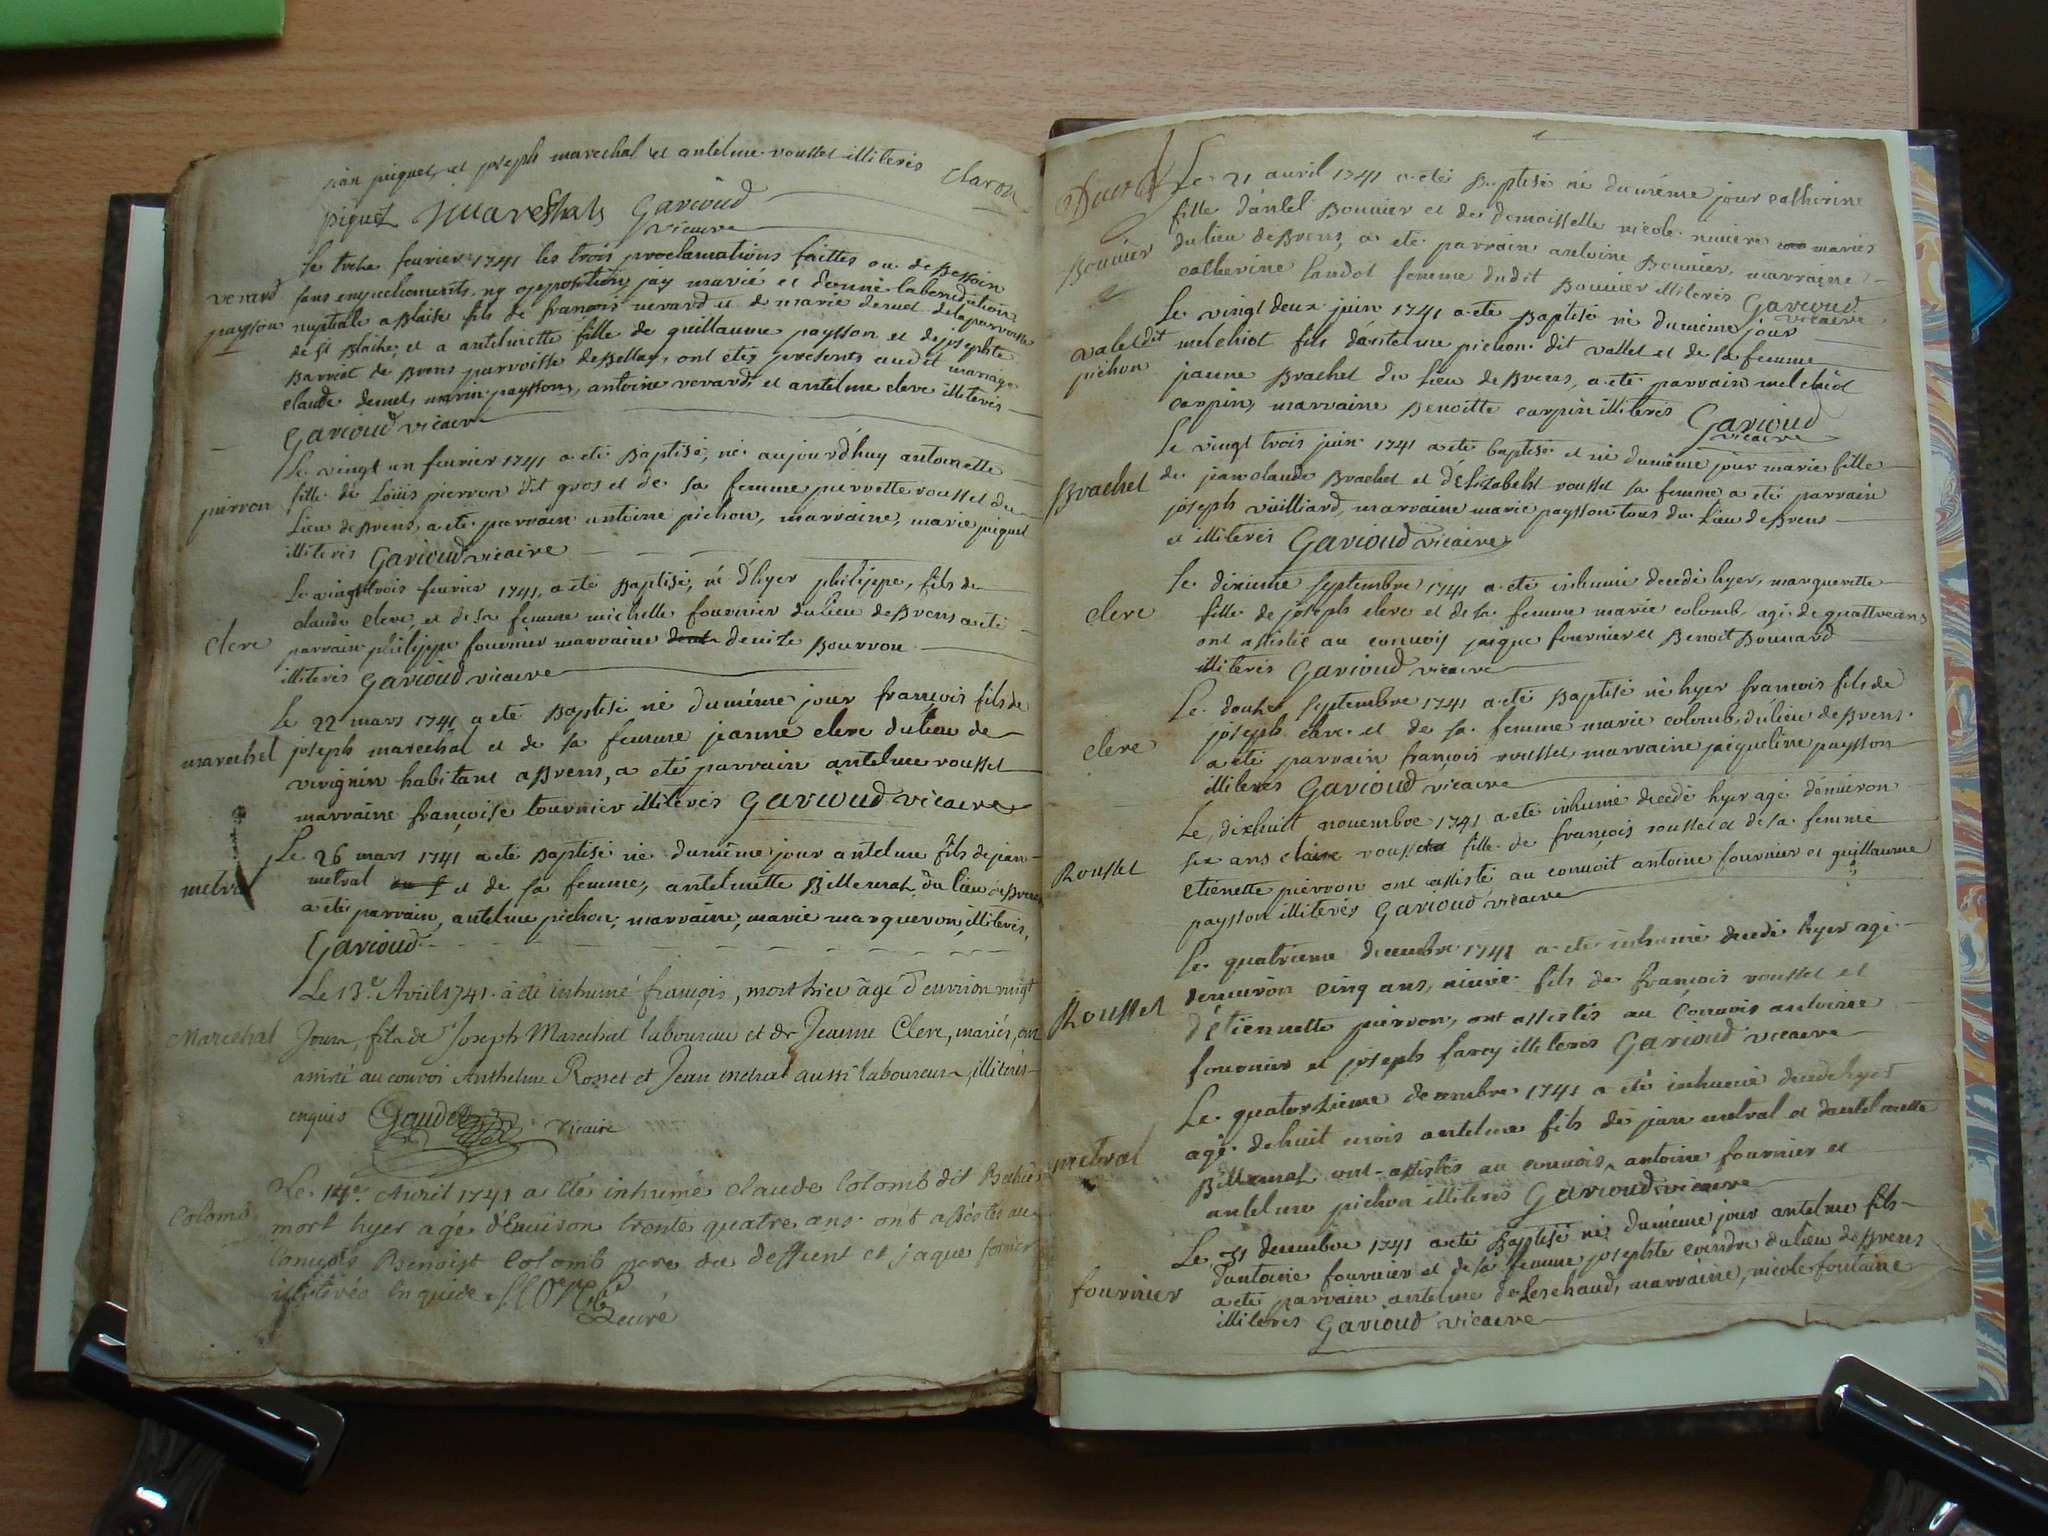 jean piquet, et joseph marechal et antelme roussel illiterés
piquet Mareshals Garioud
vicaire
verard
paysson
le treize feurier 1741 les trois proclamations faittes ou de Besoin
sans empechements, ny opposition, jay marié et donné la benediction
nuptiale a Blaise fils de françois verard et de marie demel de la parroisse
de St Blaise, et a antelmette fille de guillaume paysson et de josephte
Barriot de Brens parroisse de Belley, ont etés présents audit mariage
claude demel, marin paysson, antoine verard, et antelme clerc illiterés
Garioud vicaire
pierron
Le vingt un feurier 1741 a eté Baptisé, né aujourd'huy antoinette
fille de Loüis pierron dit gros et de sa femme pierrette roussel du
Lieu de Brens, a eté parrain antoine pichon, marraine, marie piquet
illiterés Garioud vicaire
clerc
Le vingt trois feurier 1741, a eté Baptisé, né d'hyer philippe, fils de
claude clerc, et de sa femme michelle fournier du lieu de Brens a eté
parrain philippe fournier marraine denize Bourron
illiterés Garioud vicaire
marechal
Le 22 mars 1741 a eté Baptisé né du méme jour françois fils de
joseph marechal et de sa femme jeanne clerc du lieu de
virignin habitant a Brens, a eté parrain antelme roussel
marraine françoise fournier illiterés Garioud vicaire
metral
Le 26 mars 1741 a eté Baptisé né du méme jour antelme fils de jean
metral et de sa femme, antelmette Billemaz du lieu de Brens
a eté parrain, antelme pichon, marraine, marie marqueron, illiterés,
Garioud
Marechal
Le 13e. Avril 1741. a été inhumé françois, mort hier âgé d'environ vingt
Jours, fils de Joseph Marechal laboureur et de Jeanne Clerc, mariés, ont
assisté au convoi Anthelme Rosset et Jean metral aussi laboureurs, illiterés
enquis Gaudet vicaire
Colomb
Le 14e. Avril 1741 a été inhumé claude Colomb dit
mort hyer agé d'Enuiron trente quatre ans. ont assistés au
Conuois Benoist Colomb pere du deffunt et jaque fornier
illiterés Enquis
Curé
Bouuier
Le 21 auril 1741 a eté Baptisé né du méme jour catherine
fille d'antel Bouuier et de demoisselle nicole mariés
du lieu de Brens, a eté parrain antoine Bouuier, marraine
catherine Landol femme dudit Bouuier illiterés Garioud
vicaire
valet dit
pichon
Le vingt deux juin 1741 a eté Baptisé né du méme jour
melchiot fils d'antelme pichon dit vallet et de sa femme
jeanne Brachet du Lieu de Brens, a eté parrain melchiot
carpin, marraine Benoitte carpin illiterés Garioud
vicaire
Brachet
Le vingt trois juin 1741 a eté baptisé et né du méme jour marie fille
de jean claude Brachet et d'Elizabeht roussel sa femme a eté parrain
joseph vuilliard, marraine marie paysson tous du Lieu de Brens
et illiterés Garioud vicaire
clerc
Le dixieme septembre 1741 a eté inhumée decedé hyer, marguerette
fille de joseph clerc et de sa femme marie colomb agé de quattre ans
ont assisté au conuois jacque fournier et Benoit Bonnard
illiterés Garioud vicaire
clerc
Le douze septembre 1741 a eté Baptisé né hyer françois fils de
joseph clerc et de sa femme marie colomb, du lieu de Brens.
a eté parrain françois roussel, marraine jaiqueline paysson
illiterés Garioud vicaire
Roussel
Le dixhuit nouembre 1741 a eté inhumé decedé hyer agé d'enuiron
six ans claire roussel fille de françois roussel et de sa femme
etienette pierron ont assisté au conuoit antoine fournier et guillaume
paysson illiterés Garioud vicaire
Roussel
Le quatrieme decembre 1741 a eté inhumé decedé hyer agé
d'enuiron cinq ans, fils de françois roussel et
d'étiennette pierron, ont assistés au Conuois antoine
fournier et joseph farcy illiterés Garioud vicaire
metral
Le quatorzieme decembre 1741 a eté inhumé decede hyer
agé de huit mois antelme fils de jean metral et d'antelmette
Billemaz ont assistés au conuois, antoine fournier et
antelme pichon illiterés Garioud vicaire
fournier
Le 31 decembre 1741 a eté Baptisé né du méme jour antelme fils
d'antoine fournier et de sa femme josephte du lieu de Brens
a eté parrain antelme de Leschaud, marraine, nicole fontaine
illiterés Garioud vicaire